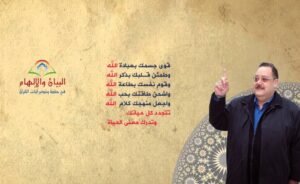 البيان والإلهام
قوى جسمك بعبادة الله
وطمئن قلبك بذكر الله
وقوم نفسك بطاعة الله
واشحن طاقتك بحب الله
واجعل منهجك كلام الله
تتجدد كل حياتك
وتدرك معنى الحياة